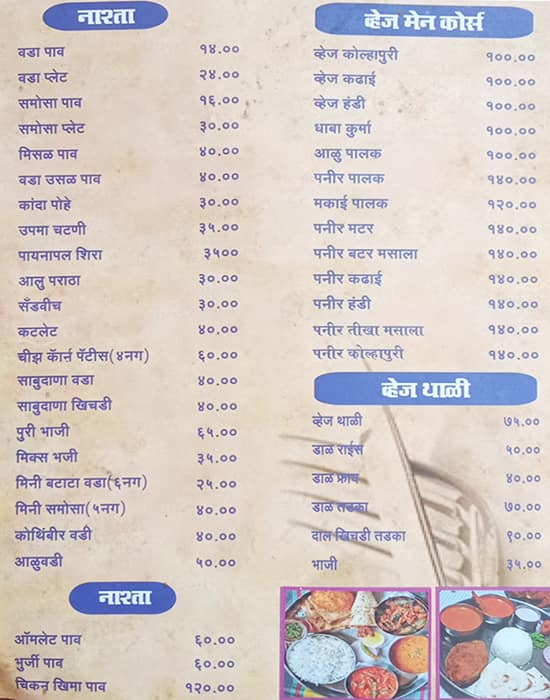 नाश्ता
वडा पाव १४.००
वडा प्लेट २४.००
समोसा पाव १६.००
समोसा प्लेट ३०.००
मिसळ पाव ४०.००
वडा उसळ पाव ४०.००
कांदा पोहे ३०.००
उपमा चटणी ३५.००
पायनापल शिरा ३५००
आलु पराठा ३०.००
सँडवीच ३०.००
कटलेट ४०.००
चीझ कॅार्न पॅटीस(४नग) ६०.००
साबुदाणा वडा ४०.००
साबुदाणा खिचडी ४०.००
पुरी भाजी ६५.००
मिक्स भजी ३५.००
मिनी बटाटा वडा(६नग) २५.००
मिनी समोसा(५नग) ४०.००
कोथिंबीर वडी ४०.००
आळुवडी ५०.००
नाश्ता
ऑमलेट पाव ६०.००
भुर्जी पाव ६०.००
चिकन खिमा पाव १२०.००
व्हेज मेन कोर्स
व्हेज कोल्हापुरी १००.००
व्हेज कढाई १००.००
व्हेज हंडी १००.००
धाबा कुर्मा १००.००
आळु पालक १००.००
पनीर पालक १४०.००
मकाई पालक १२०.००
पनीर मटर १४०.००
पनीर बटर मसाला १४०.००
पनीर कढाई १४०.००
पनीर हंडी १४०.००
पनीर तीखा मसाला १४०.००
पनीर कोल्हापुरी १४०.००
व्हेज थाळी
व्हेज थाळी ७५.००
डाळ राईस ५०.००
डाळ फ्राय ४०.००
डाळ तडका ७०.००
दाल खिचडी तडका ९०.००
भाजी ३५.००